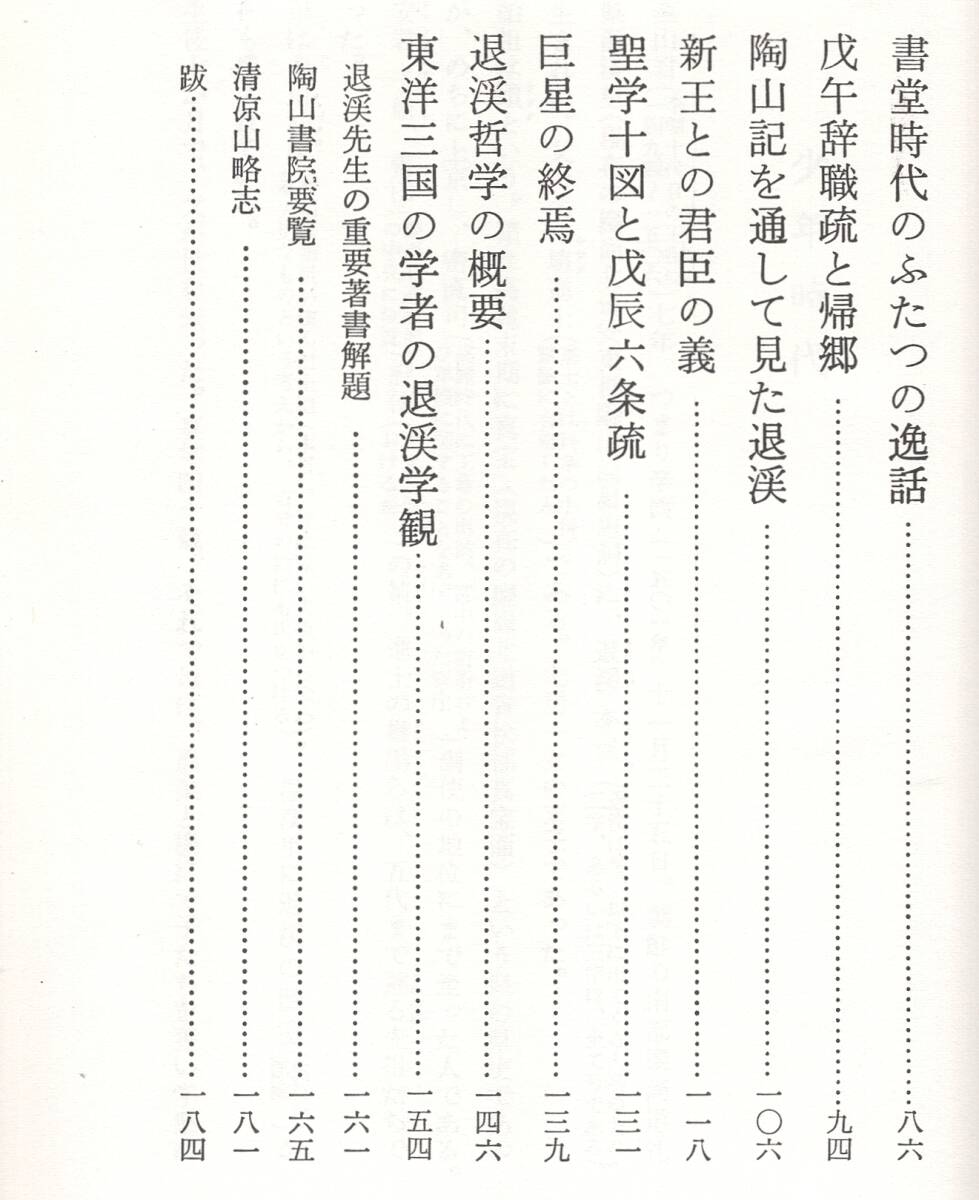 書堂時代のふたつの逸話……八六
戊午辞職疏と帰郷……九四
陶山記を通して見た退渓……一〇六
新王との君臣の義……一一八
聖学十図と戊辰六条疏……一三一
巨星の終焉……一三九
退渓哲学の概要……一四六
東洋三国の学者の退渓学観……一五四
退渓先生の重要著書解題……一六一
陶山書院要覧……一六五
清凉山略志……一八一
跋……一八四